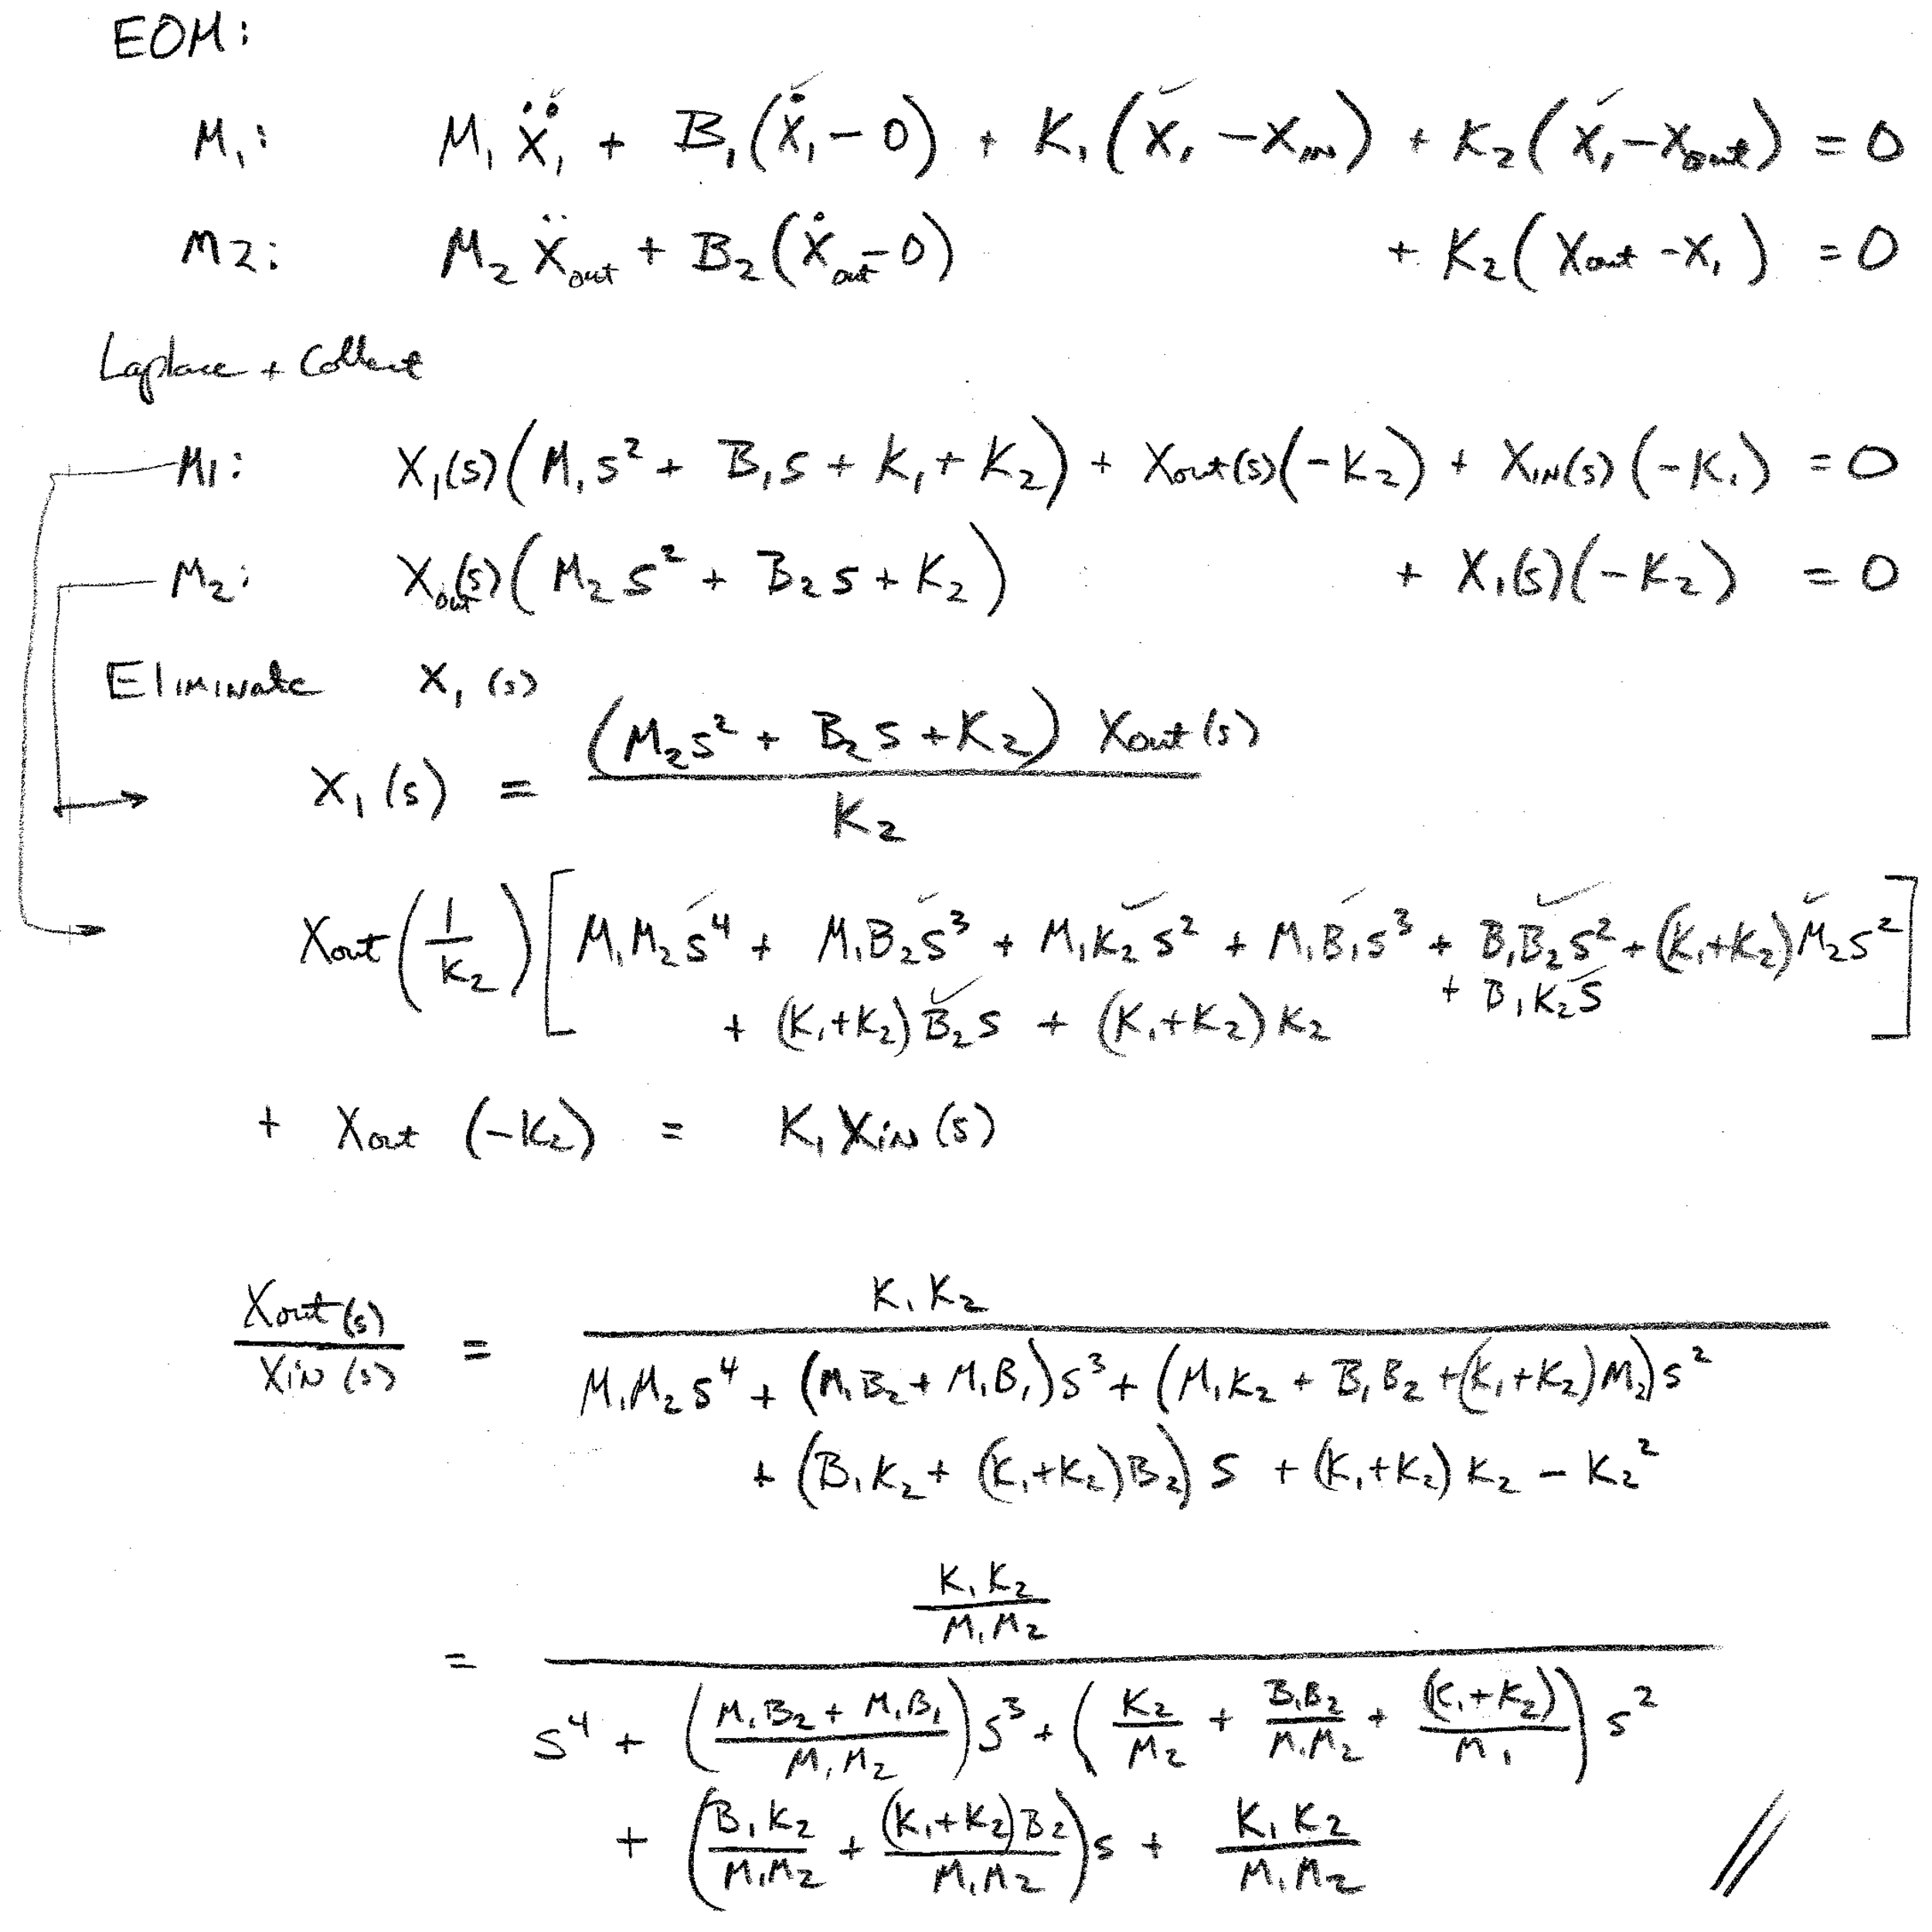 EOM:
M₁: M₁ẍ₁ + B₁(ẋ₁ - 0) + K₁(x₁ - x_IN) + K₂(x₁ - x_out) = 0
M2: M₂ẍ_out + B₂(ẋ_out - 0) + K₂(x_out - x₁) = 0
Laplace + Collect
M1: X₁(s)(M₁s² + B₁s + K₁ + K₂) + X_out(s)(-K₂) + X_IN(s)(-K₁) = 0
M₂: X_out(s)(M₂s² + B₂s + K₂) + X₁(s)(-K₂) = 0
Eliminate X₁(s)
X₁(s) = (M₂s² + B₂s + K₂) X_out(s) / K₂
X_out(1/K₂)[M₁M₂s⁴ + M₁B₂s³ + M₁K₂s² + M₁B₁s³ + B₁B₂s² + (K₁+K₂)M₂s²
+ B₁K₂s
+ (K₁+K₂)B₂s + (K₁+K₂)K₂]
+ X_out(-K₂) = K₁X_IN(s)
X_out(s) / X_IN(s) = K₁K₂ /
M₁M₂s⁴ + (M₁B₂ + M₁B₁)s³ + (M₁K₂ + B₁B₂ + (K₁+K₂)M₂)s²
+ (B₁K₂ + (K₁+K₂)B₂)s + (K₁+K₂)K₂ - K₂²
= K₁K₂/M₁M₂ /
s⁴ + ((M₁B₂ + M₁B₁)/M₁M₂)s³ + (K₂/M₂ + B₁B₂/M₁M₂ + (K₁+K₂)/M₁)s²
+ (B₁K₂/M₁M₂ + (K₁+K₂)B₂/M₁M₂)s + K₁K₂/M₁M₂ //